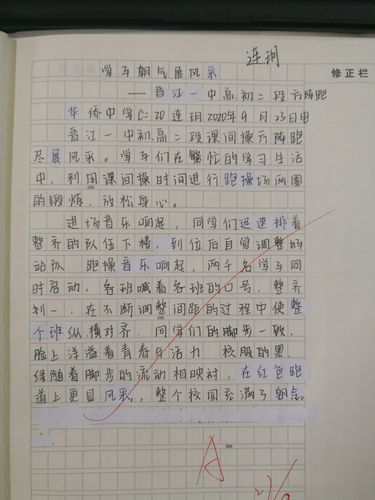 连玥
修正栏
学子朝气展风采
——晋江一中高初二段方阵跑
华侨中学C=20连玥2020年9月23日电
晋江一中初高二段课间操方阵跑
尽展风采。学子们在繁忙的学习生活
中，利用课间操时间进行跑操场两圈
的锻炼，放松身心。
进场音乐响起，同学们迅速排着
整齐的队伍下楼，到位后自觉调整好
站队 跑操音乐响起，两千名学子同
时启动，各班喊着各班的口号，整齐
划一，在不断调整间距的过程中使整
个班纵横对齐 同学们的脚步一致，
脸上洋溢着青春与活力 校服的黑、
绿随着脚步的流动相映衬，在红色跑
道上更显风采，整个校园充满了朝气。
A